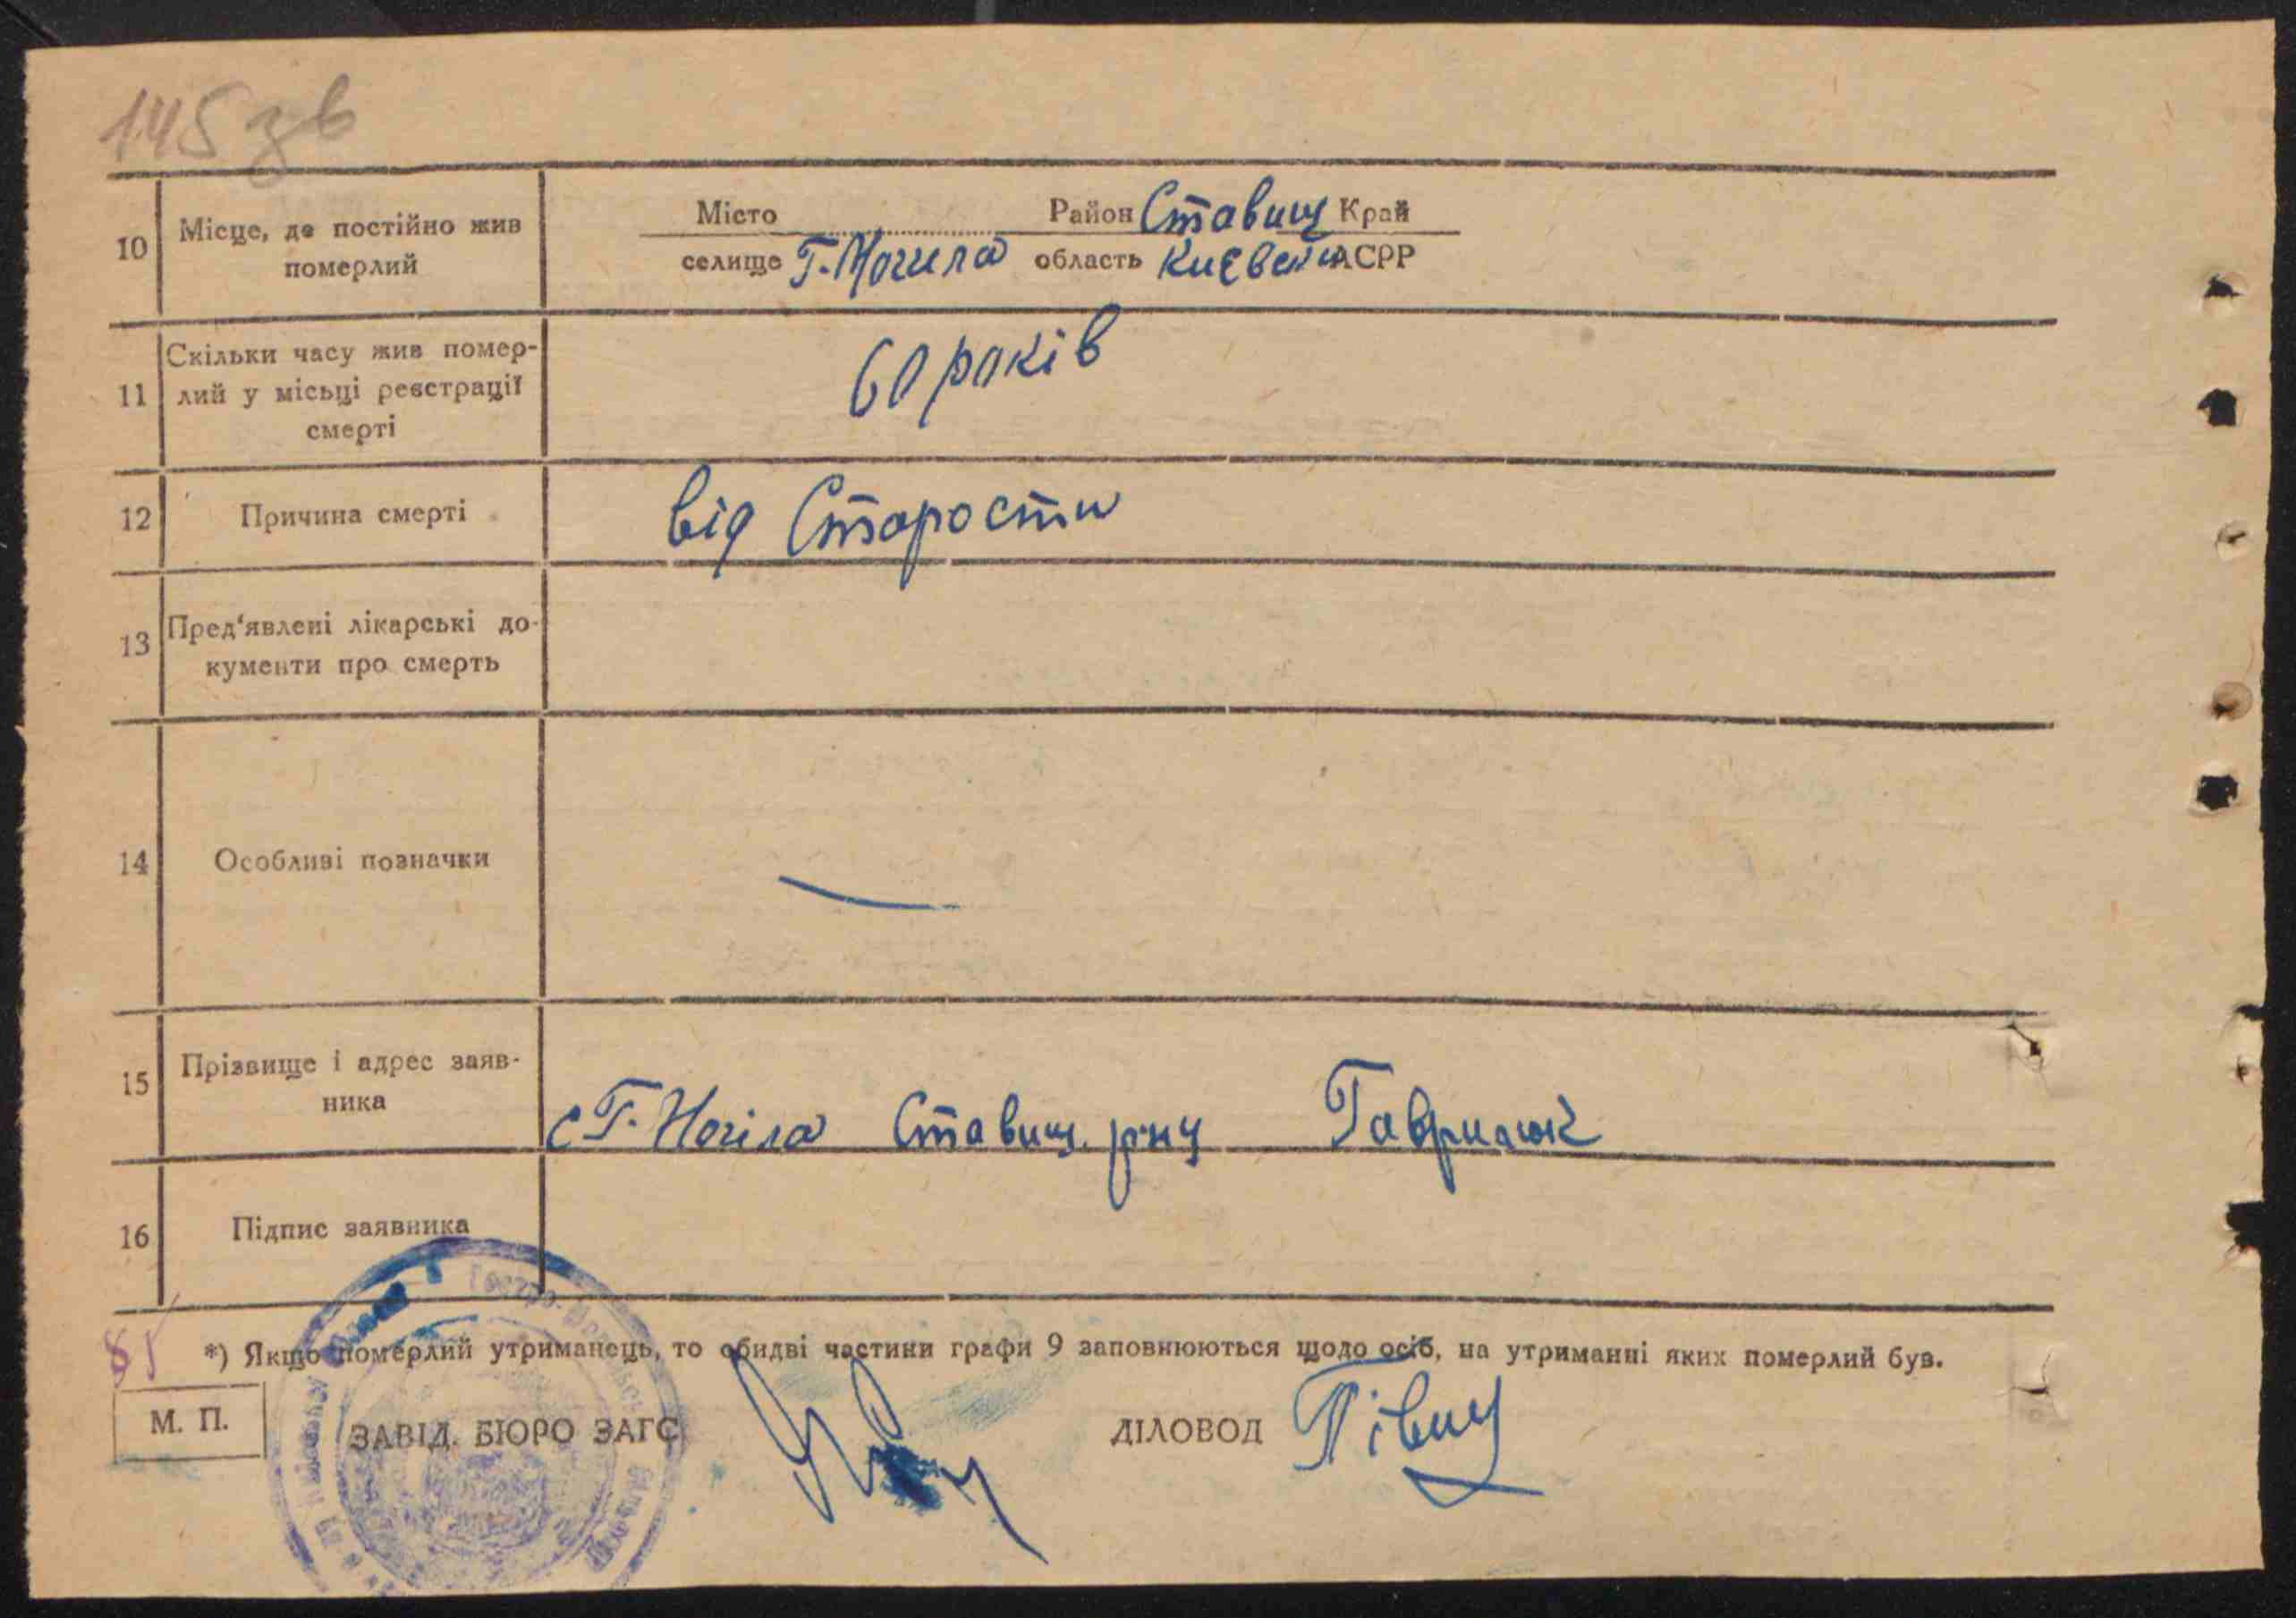 145 зв
10
Місце, де постійно жив
померлий
Місто Район Ставищ Край
селище Г. Могила область Києвськ АСРР
11
Скільки часу жив помер-
лий у місьці реєстрації
смерті
60 років
12
Причина смерті
від Старости
13
Пред‘явлені лікарські до-
кументи про смерть
14
Особливі позначки
15
Прізвище і адрес заяв-
ника
с Г. Могіла Ставищ. р-ну Гаврилюк
16
Підпис заявника
85
*) Якщо померлий утриманець, то обидві частини графи 9 заповнюються щодо осіб, на утриманні яких померлий був.
М. П.
ЗАВІД. БЮРО ЗАГС
ДІЛОВОД